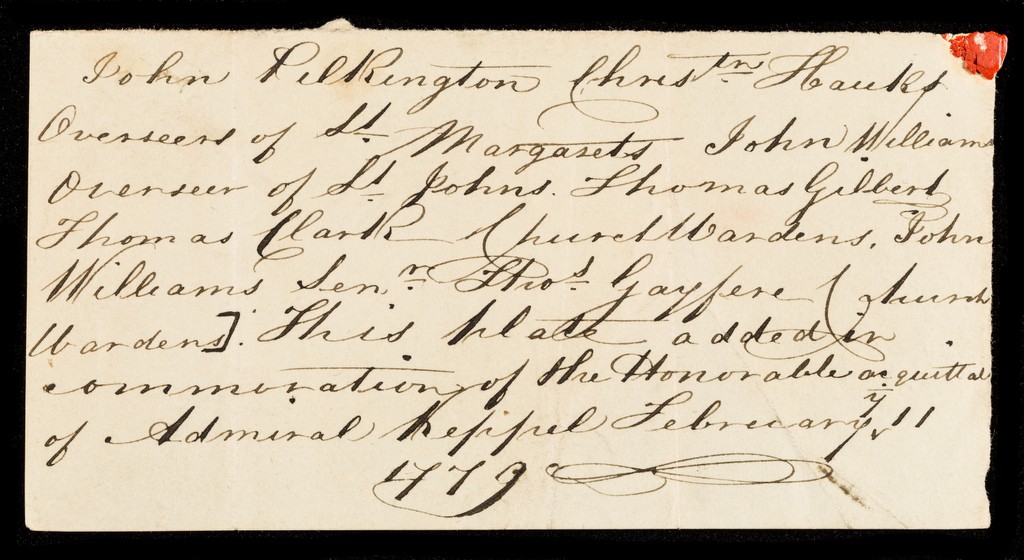 John Pilkington Christn. Hauks
Overseers of St. Margarets John Williams
Overseer of St Johns. Thomas Gilbert
Thomas Clark Church Wardens. John
Williams Senr. Thos. Gayfere (Church
Wardens]. This plate added in
commoration of the Honorable acquittal
of Admiral Keppel February ye 11
1779